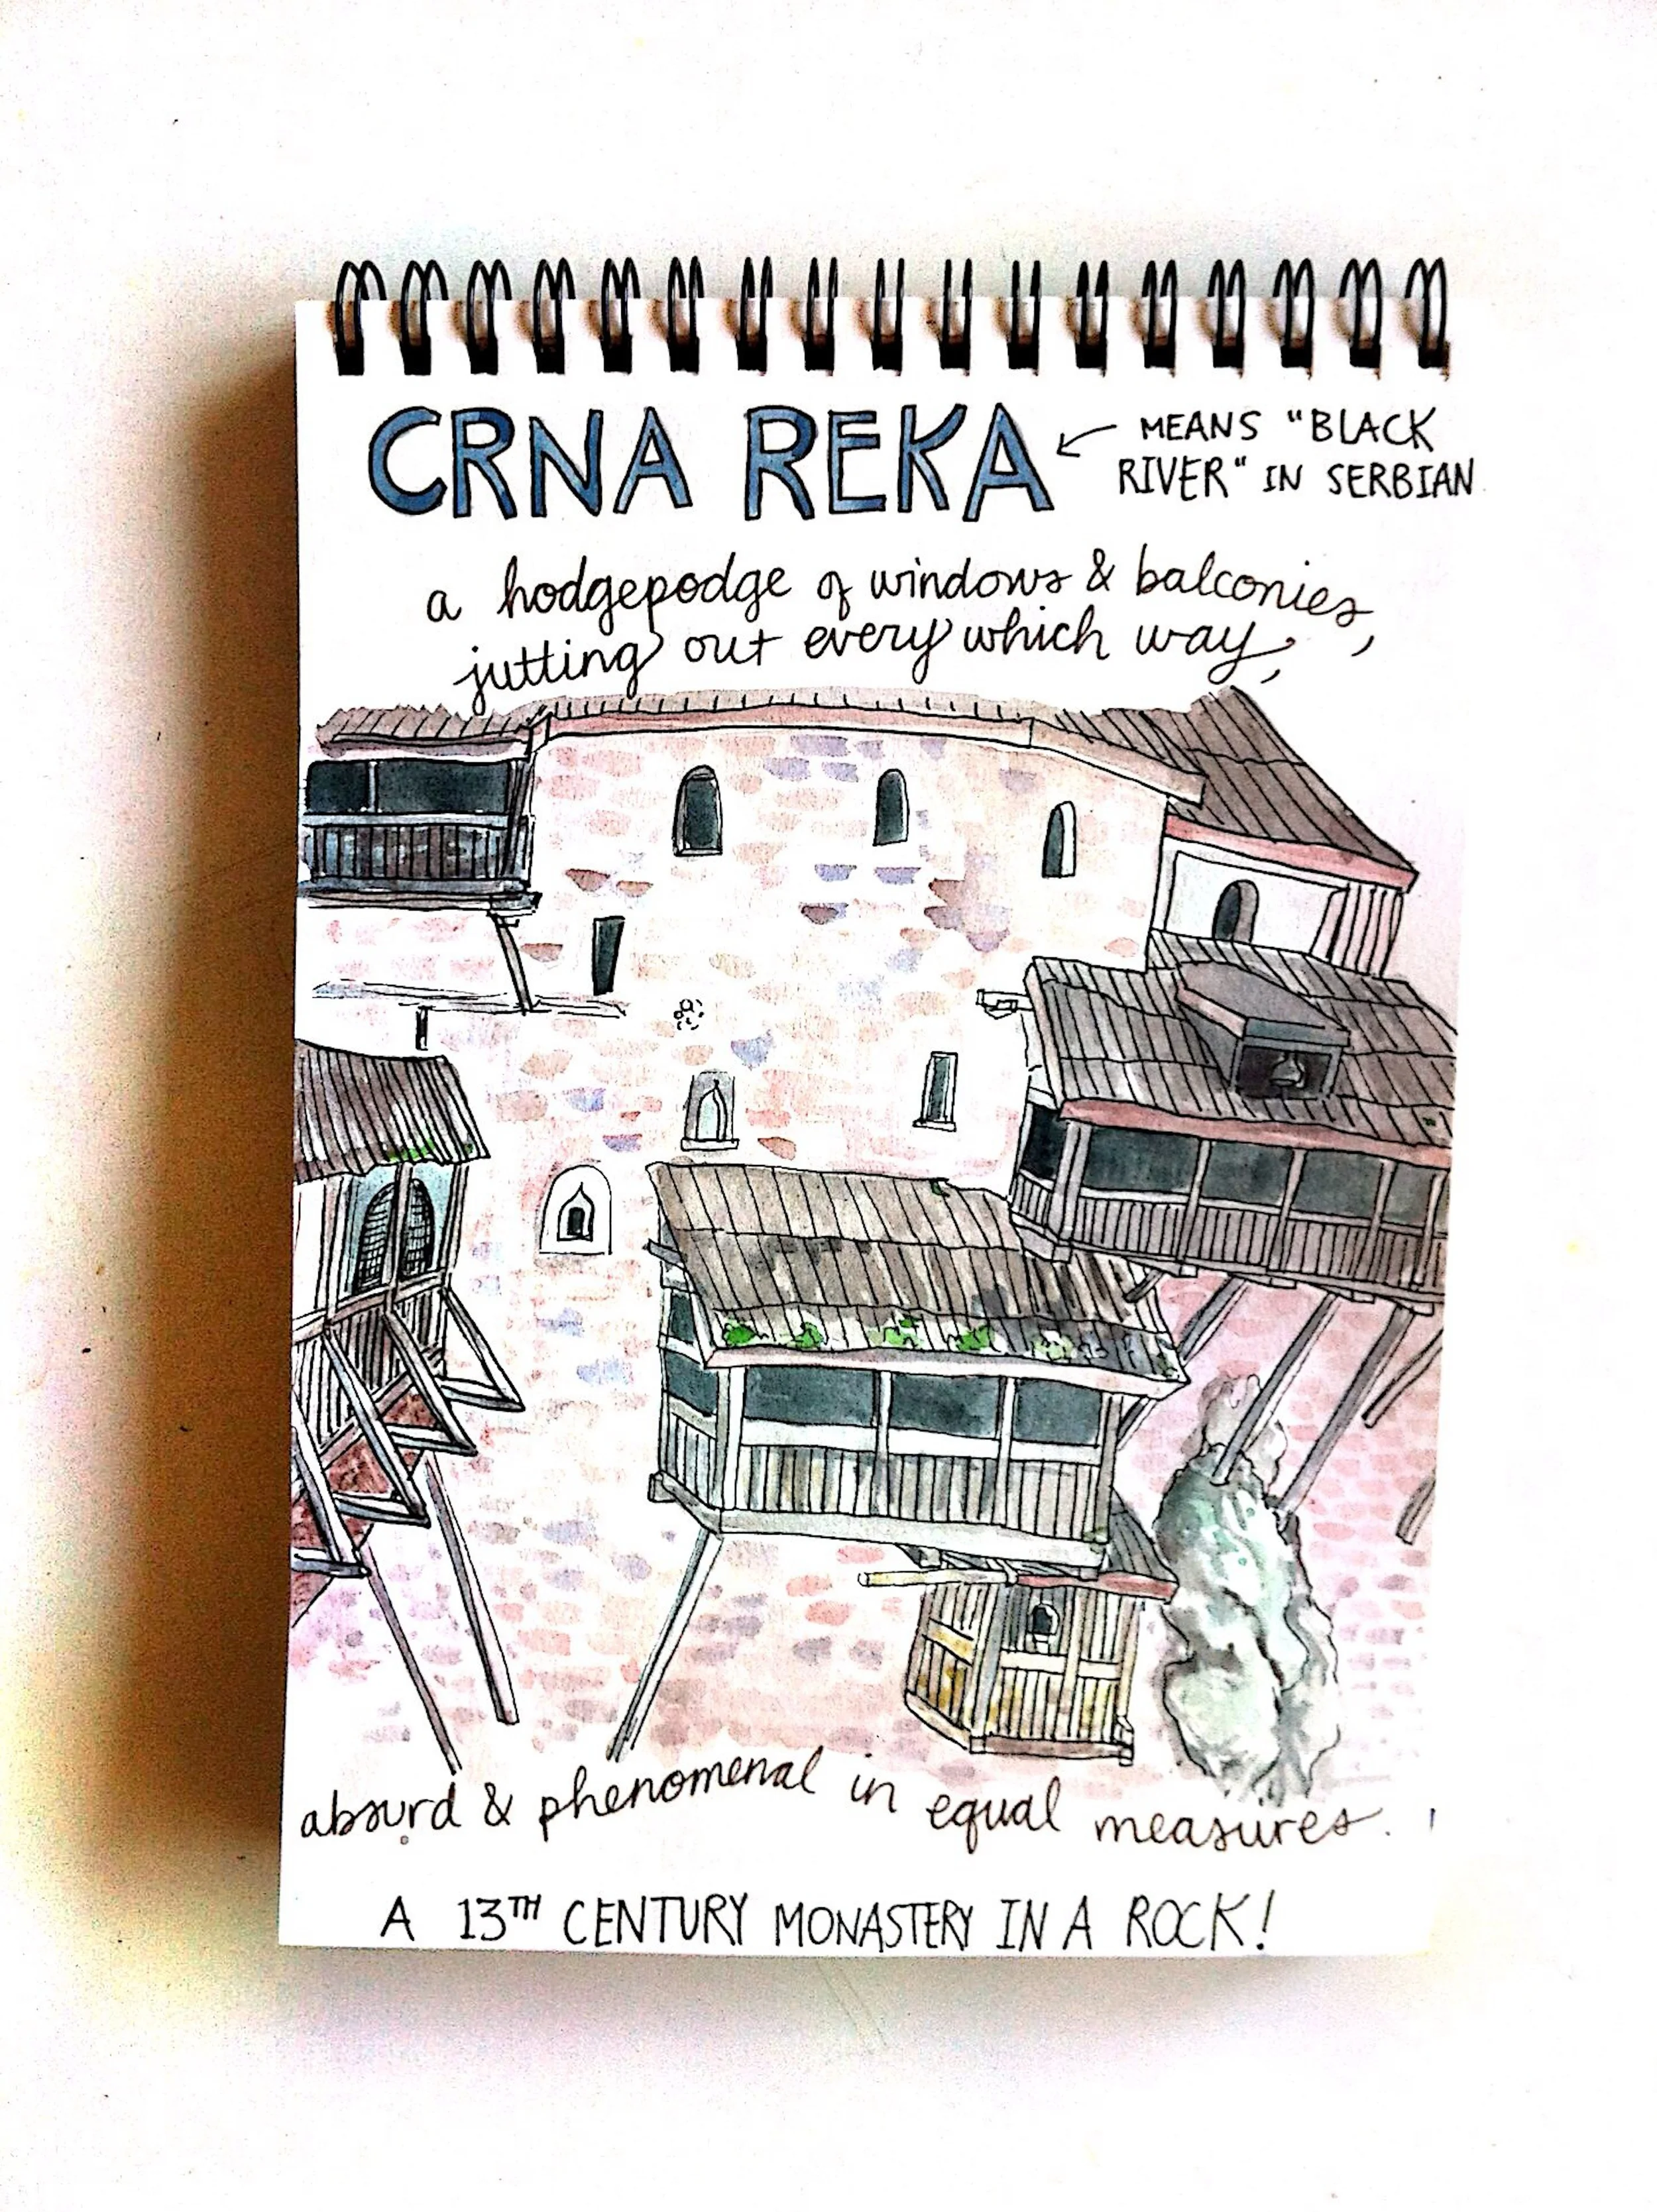 CRNA REKA
MEANS "BLACK
RIVER" IN SERBIAN
a hodgepodge of windows & balconies,
jutting out every which way,
absurd & phenomenal in equal measures.
A 13TH CENTURY MONASTERY IN A ROCK!